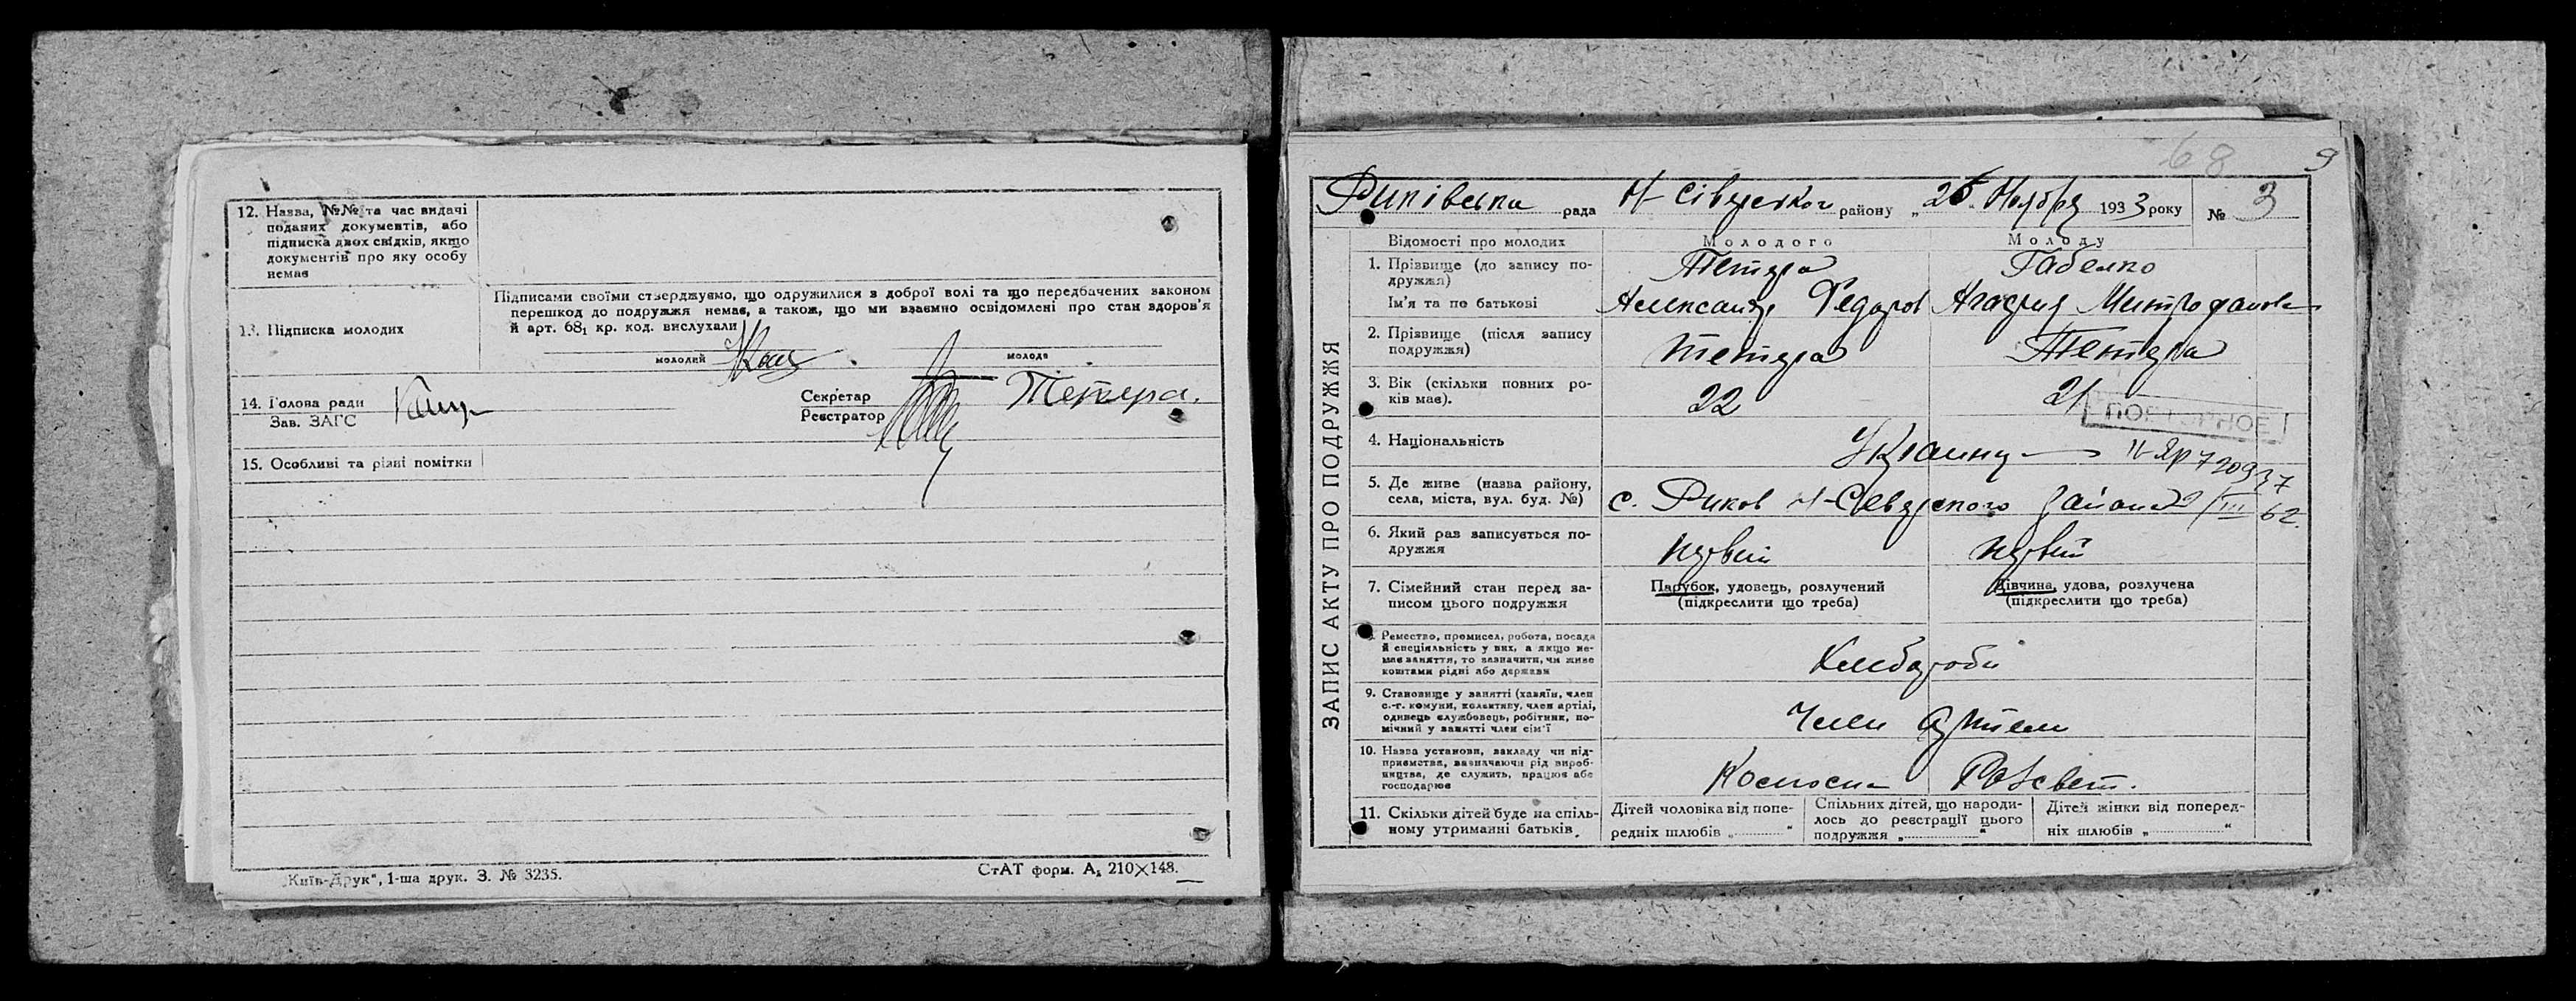 12. Назва, №№ та час видачі
поданих документів, або
підписка двох свідків, якщо
документів про яку особу
немає
Підписами своїми стверджуємо, що одружилися з доброї волі та що передбачених законом
перешкод до подружжя немає, а також, що ми взаємно освідомлені про стан здоров'я
й арт. 68₁ кр. код. вислухали
13. Підписка молодих
молодий
молода
14. Голова ради
Зав. ЗАГС
Секретар
Реєстратор
Тетера.
15. Особливі та різні помітки
„Київ-Друк", 1-ша друк. З. № 3235.
СтАТ форм. А₅ 210×148.
68
9
Риківська рада Н-Сіверского району „26" Ноября 1933 року № 3
ЗАПИС АКТУ ПРО ПОДРУЖЖЯ
Відомості про молодих
Молодого
Молоду
1. Прізвище (до запису по-
дружжя)
Тетера
Габелко
Ім'я та по батькові
Александр Федоров
Агафия Митрофанова
2. Прізвище (після запису
подружжя)
Тетера
Тетера
3. Вік (скільки повних ро-
ків має).
22
21
ПОВТОРНОЕ
4. Національність
Украинц
II-ЯР 720937
5. Де живе (назва району,
села, міста, вул. буд. №)
с. Риков Н-Северского района
2/III 62.
6. Який раз записується по-
дружжя
первий
первий
7. Сімейний стан перед за-
писом цього подружжя
Парубок, удовець, розлучений
(підкреслити що треба)
Дівчина, удова, розлучена
(підкреслити що треба)
Ремество, промисел, робота, посада
й спеціяльність у них, а якщо не-
має заняття, то зазначити, чи живе
коштами рідні або держави
Хлебороби
9. Становище у занятті (хазяїн, член
с.-г. комуни, колективу, член артілі,
одинець службовець, робітник, по-
мічний у занятті член сім'ї
Член Артели
10. Назва установи, закладу чи під-
приємства, зазначаючи рід вироб-
ництва, де служить, працює або
господарює
Колхоспа Розсвет.
11. Скільки дітей буде на спіль-
ному утриманні батьків.
Дітей чоловіка від попе-
редніх шлюбів „ "
Спільних дітей, що народи-
лось до реєстрації цього
подружжя „ "
Дітей жінки від поперед-
ніх шлюбів „ "